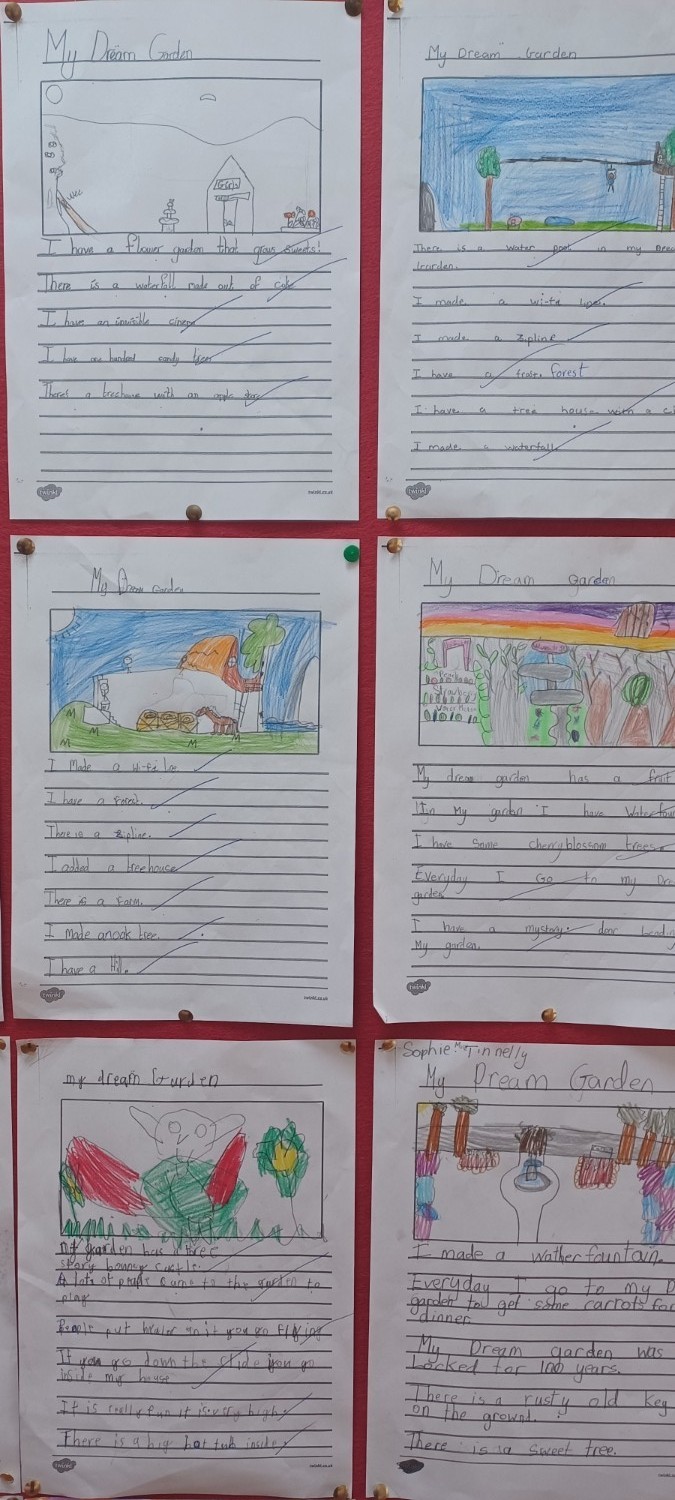 My Dream Garden
I have a flower garden that grows sweets!
There is a waterfall made out of cake
I have an invisible cinema
I have one hundred candy trees
There's a treehouse with an apple door
twinkl
twinkl.co.uk
My Dream Garden
There is a water pool in my
Garden.
I made a
I made a zipline
I have a forest
I have a tree house with a
I made a waterfall
twinkl
My Dream Garden
I Made a
I have a forest.
There is a zipline.
I added a treehouse
There is a farm.
I made an oak tree.
I have a Hill.
twinkl
twinkl.co.uk
My Dream garden
My dream garden has a fruit
In My garden I have
I have some cherryblossom trees.
Everyday I Go to my
garden
I have a mystory door
My garden.
twinkl
my dream Garden
my garden has a three
story bouncy castle.
A lots of people came to the garden to
play
People put in it you go flying
If you go down the slide you go
inside my house
It is really fun it is very high
There is a big hot tub inside
twinkl
twinkl.co.uk
Sophie Mc Tinnelly
My Dream Garden
I made a wather fountain.
Everyday I go to my D
garden to get some carrots for
dinner
My Dream garden was
Locked for 100 years.
There is a rusty old key
on the grownd.
There is a sweet tree.